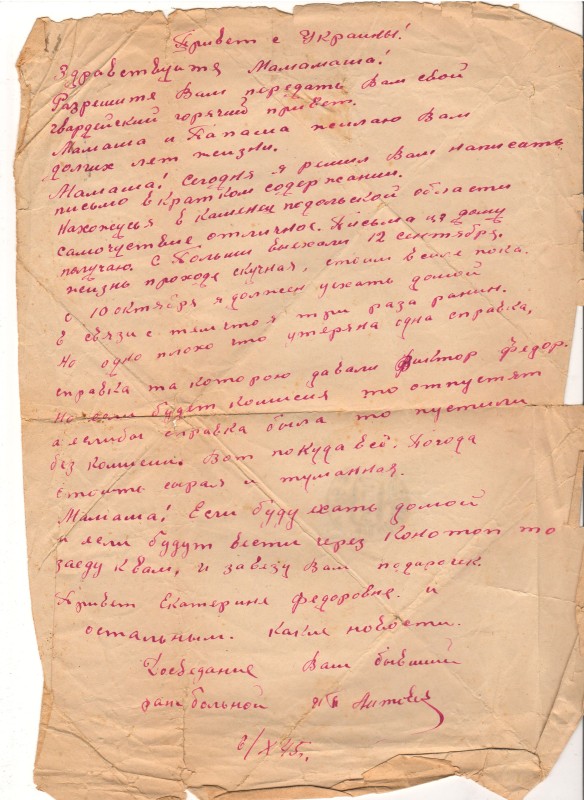 Привет с Украины!
Здравствуйте Мамамаша!
Разрешите Вам передать Вам свой
гвардейский горячий привет.
Мамаша и Папаша желаю Вам
долгих лет жизни.
Мамаша! Сегодня я решил Вам написать
письмо в кратком содержании.
Нахожусья в Каменец подольской области
самочуствие отличное. Письма из дому
получаю. С Польши выехали 12 сентября.
жизнь проходе скучная, стоим в селе пока.
с 10 октября я должен уехать домой
в связи с тем что я три раза ранин.
Но одно плохо что утеряна одна справка,
справка та которою давали Федор.
Но если будет комисия то отпустят
а еслибы справка была то пустили
без комисии. Вот покуда всё. Погода
стоить сырая и туманная.
Мамаша! Если буду ехать домой
и если будут вести через Конотоп то
заеду к Вам, и завезу Вам подарочек.
Привет Екатерине Федоровне. и
остальным. какие новости.
Досведание Ваш бывший
больной
/X 45г.